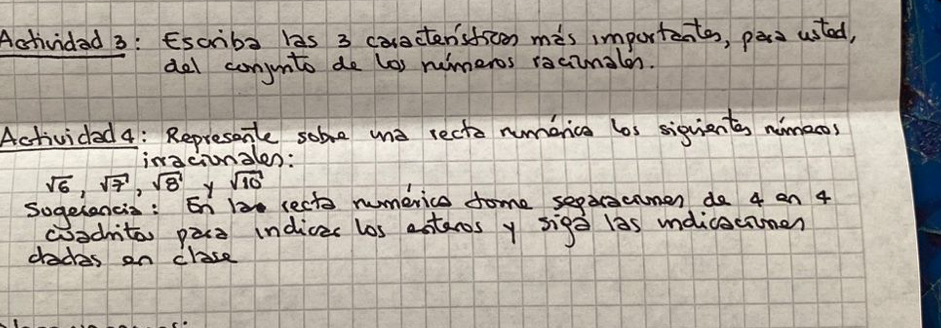 Actividad 3: Escriba las 3 características más importantes, para usted,
del conjunto de los números racionales.
Actividad 4: Represente sobre una recta numérica los siguientes números
irracionales:
√6, √7, √8 y √10
Sugerencia: En la recta numérica tome separaciones de 4 en 4
cuadritos para indicar los enteros y siga las indicaciones
dadas en clase